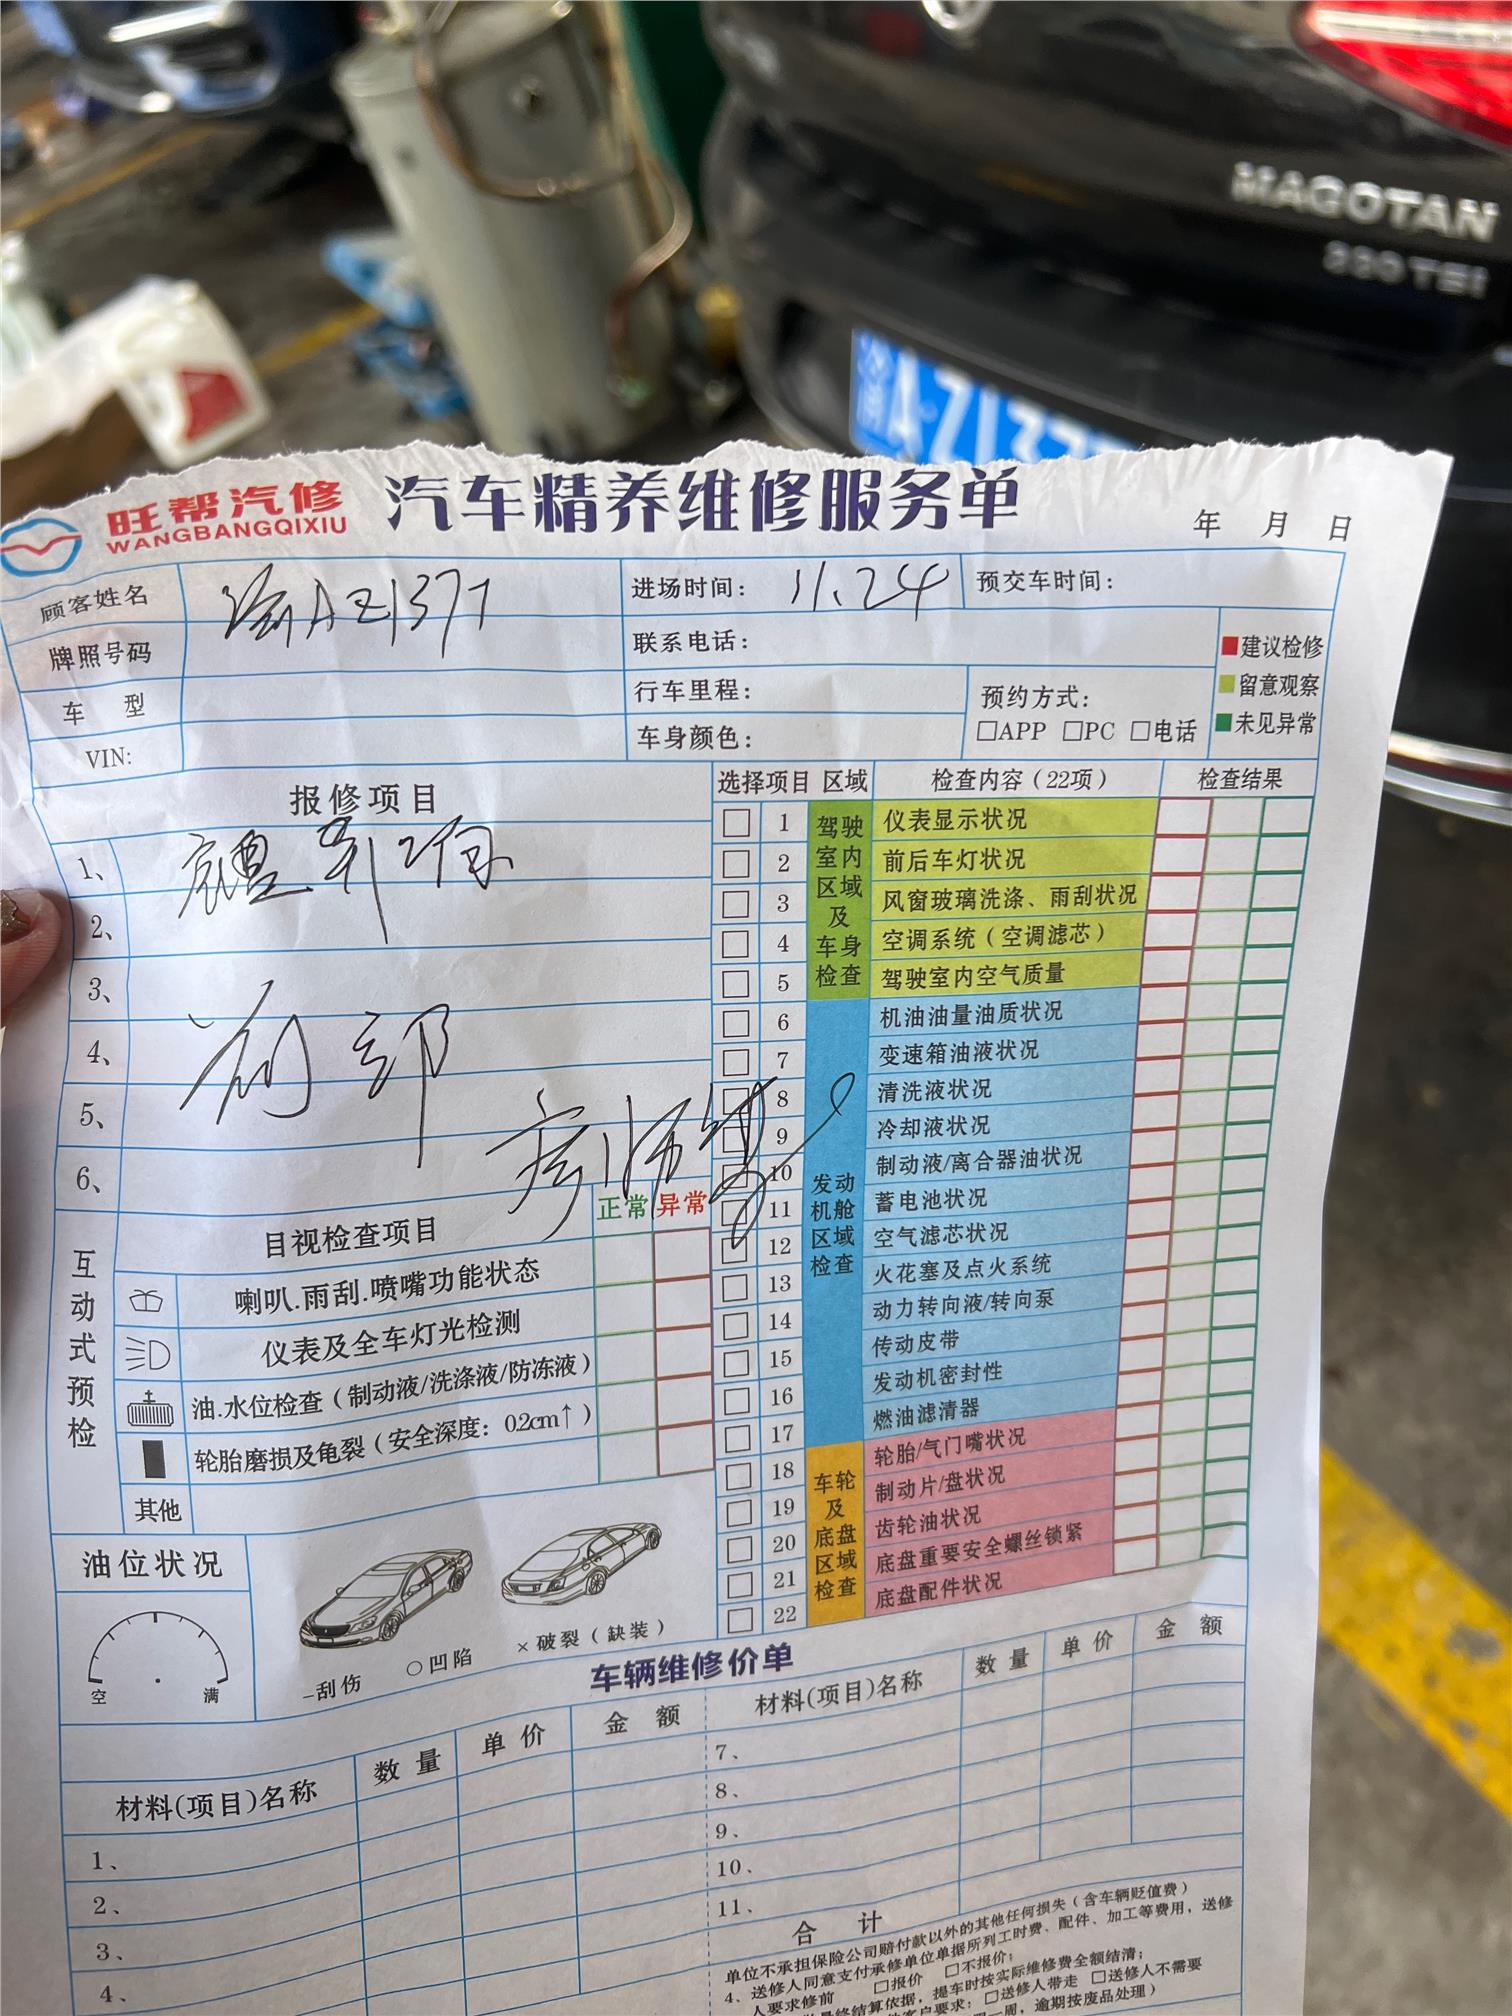 MAGOTAN
旺帮汽修
WANGBANGQIXIU
汽车精养维修服务单
年 月 日
顾客姓名
渝AZ1377
进场时间: 11.24
预交车时间:
牌照号码
联系电话:
车 型
行车里程:
预约方式:
□APP □PC □电话
VIN:
车身颜色:
建议检修
留意观察
未见异常
报修项目
1、
2、
3、
4、
前部
5、
6、
选择项目 区域 检查内容(22项) 检查结果
驾驶室内区域及车身检查
1 仪表显示状况
2 前后车灯状况
3 风窗玻璃洗涤、雨刮状况
4 空调系统(空调滤芯)
5 驾驶室内空气质量
发动机舱区域检查
6 机油油量油质状况
7 变速箱油液状况
8 清洗液状况
9 冷却液状况
10 制动液/离合器油状况
11 蓄电池状况
12 空气滤芯状况
13 火花塞及点火系统
14 动力转向液/转向泵
15 传动皮带
16 发动机密封性
17 燃油滤清器
车轮及底盘区域检查
18 轮胎/气门嘴状况
19 制动片/盘状况
20 齿轮油状况
21 底盘重要安全螺丝锁紧
22 底盘配件状况
互动式预检
目视检查项目 正常 异常
喇叭.雨刮.喷嘴功能状态
仪表及全车灯光检测
油.水位检查(制动液/洗涤液/防冻液)
轮胎磨损及龟裂(安全深度: 0.2cm↑)
其他
油位状况
空 满
−刮伤 ○凹陷 ×破裂(缺装)
车辆维修价单
材料(项目)名称 数量 单价 金额
1、
2、
3、
4、
材料(项目)名称 数量 单价 金额
7、
8、
9、
10、
11、
合 计
单位不承担保险公司赔付款以外的其他任何损失(含车辆贬值费)
4、送修人同意支付承修单位单据所列工时费、配件、加工等费用,送修
人要求修前 □报价 □不报价;
结算依据,提车时按实际维修费全额结清;
客户要求: □送修人带走 □送修人不需要
一周,逾期按废品处理)